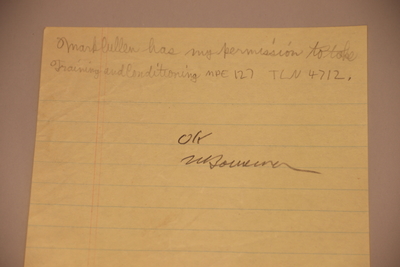 Mark Pullen has my permission to take
Training and Conditioning MPE 127 TLN 4712.
OK